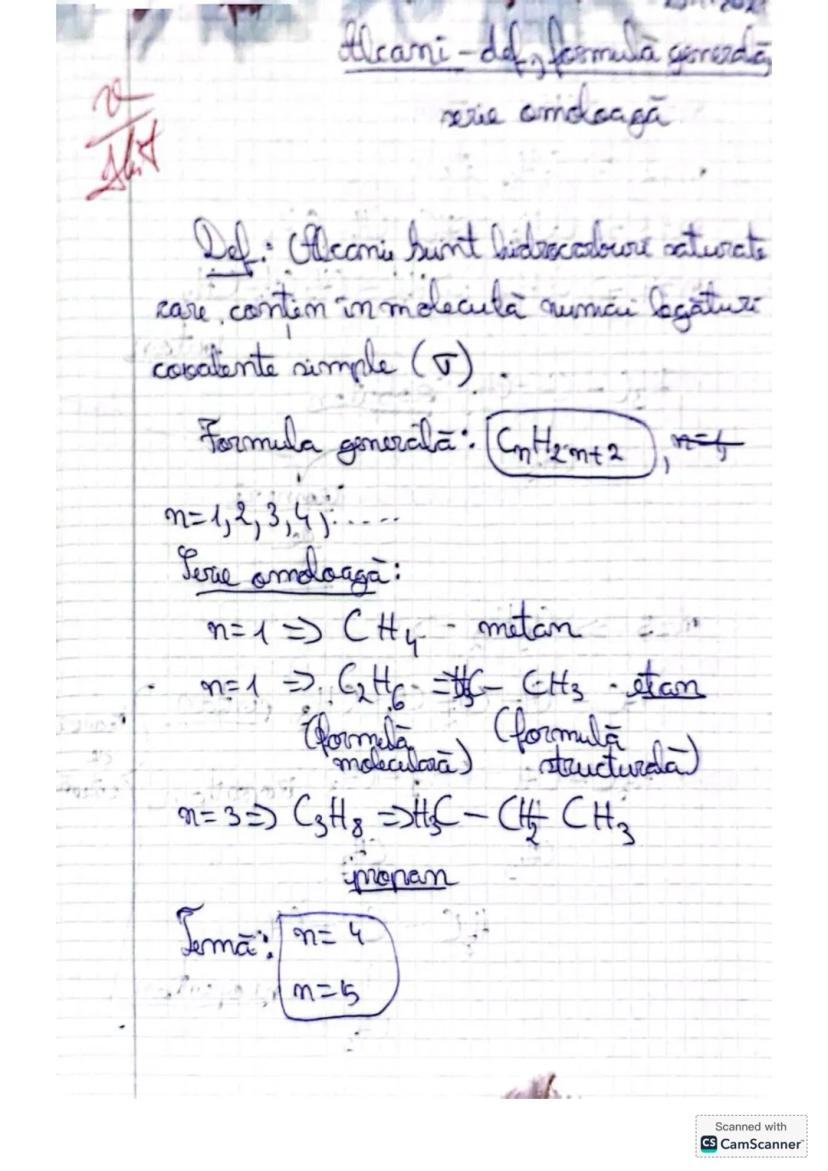 Alcani - def, formulă generală,
serie omoloagă
Def.: Alcanii sunt hidrocarburi saturate
care conțin în moleculă numai legături
covalente simple (σ)
Formula generală: CnH2n+2, n=1,
n=1, 2, 3, 4, .....
Serie omoloagă:
n=1 => CH4 - metan
n=1 => C2H6 => H3C - CH3 - etan
(formulă moleculară) (formulă structurală)
n=3 => C3H8 => H3C - CH2 - CH3
propan
Temă: n=4
n=5
Scanned with
CS CamScanner